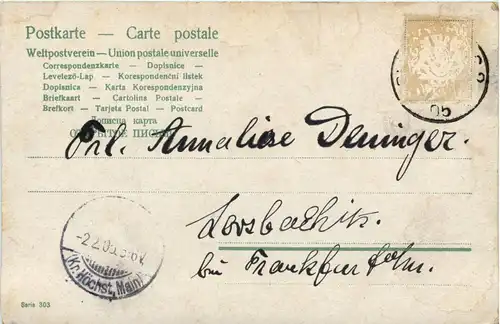 Postkarte — Carte postale
Weltpostverein — Union postale universelle
Correspondenzkarte — Dopisnice -
Levelező-Lap — Korespondenční listek
Dopisnica - Karta Korespondenzyjna
Briefkaart - Cartolina Postale -
Brefkort - Tarjeta Postal - Postcard
Дописна карта
ОТКРЫТОЕ ПИСЬМО
05
Frl. Annaliese Deninger.
Lorsbach i/T.
bei Frankfurt a/m.
-2.2.05.
(Kr. Höchst, Main)
Serie 303